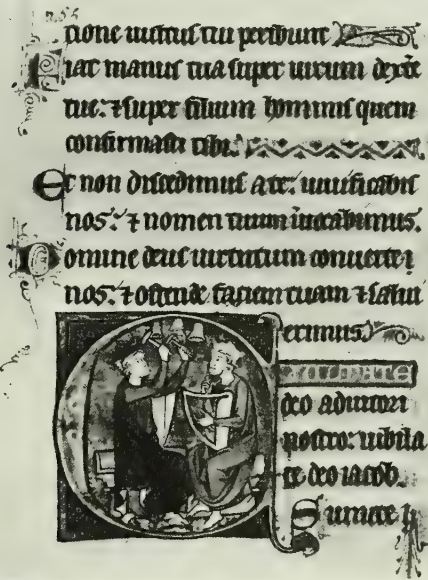 tione uultus tui peribunt
Fiat manus tua super uirum dexte
tue: ⁊ super filium hominis quem
confirmasti tibi.
Et non discedimus a te: uiuificabis
nos: ⁊ nomen tuum inuocabimus.
Domine deus uirtutum conuerte
nos: ⁊ ostende faciem tuam ⁊ salui
erimus.
EXULTATE
deo adiutori
nostro: iubila
te deo iacob.
Sumite